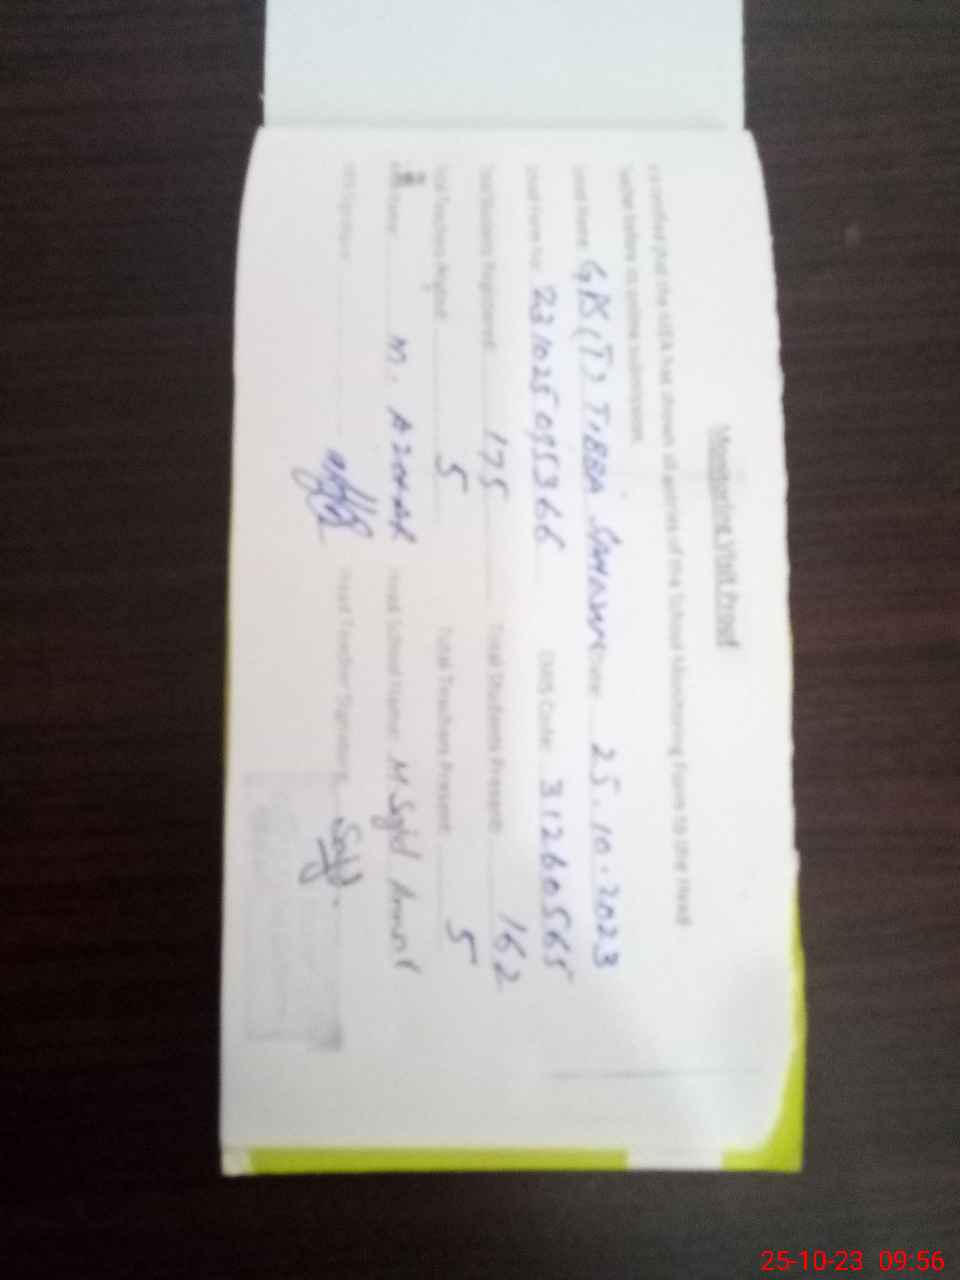 Monitoring Visit Proof
that the has shown all entries of the School Monitoring Form to the Head
Teacher before its online submission.
School Name: GPS (T) TIBBA Date: 25.10.2023
Form No: 231025095366 EMIS Code: 31260565
Total Students Registered: 175 Total Students Present: 162
Total Teachers 5 Total Teachers Present: 5
Name: M. Azmat School Name: M Sajid
Signature: Head Teacher Signature: Sajid.
25-10-23 09:56